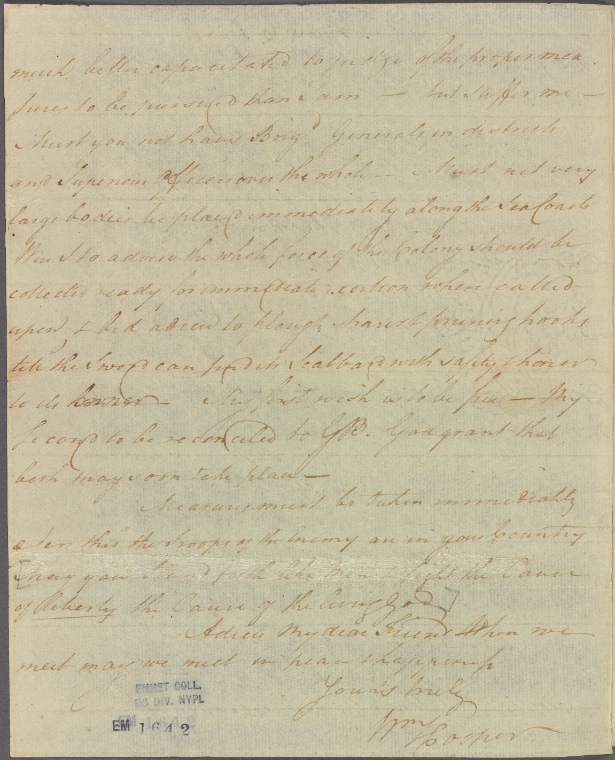 much better capacitated to judge of the proper mea
sures to be pursued than I am — but suffer me —
Must you not have Brigd Generals in districts
and Superiour Officers over the whole — Must not very
large bodies be placed immediately along the Sea Coasts
Was I to advise the whole force of the Colony should be
collected ready for immediate exertion when called
upon & bid adieu to plough shares & pruning hooks
till the Sword can find its Scabbard with safety & honor
to its owner — My first wish is to be free — My
second to be reconciled to GB. God grant that
both may soon take place —
Measures must be taken immediately
this the Troops of the Enemy are in your Country
may you stand forth like men & fight the Cause
of Liberty the Cause of the living God
Adieu My dear Friend When we
meet may we meet in peace & happiness
Yours truly
Wm Hooper
EMMET COLL.
MS DIV. NYPL
EM 1642